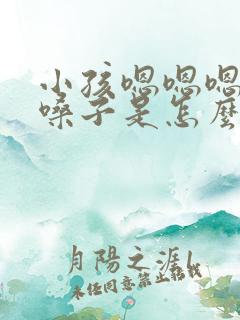 小孩嗯嗯嗯
嗓子是怎麼
月陽之涯l
未经同意禁止转载